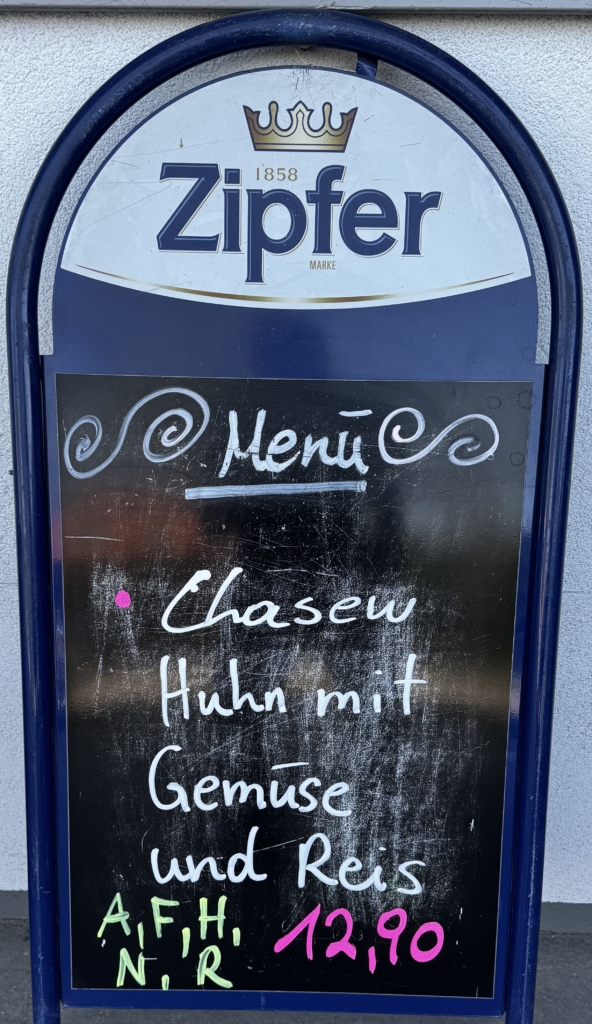 1858
Zipfer
MARKE
Menü
Chasew
Huhn mit
Gemüse
und Reis
A, F, H,
N, R
12,90